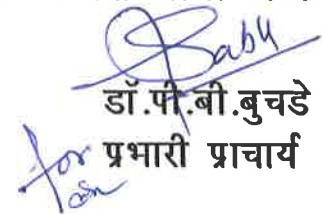 डॉ.पी.बी.बुचडे
for प्रभारी प्राचार्य